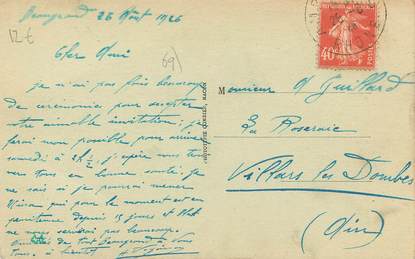 Beaugrand 26 Août 1926
12€
69
Cher Ami
je n'ai pas fait beaucoup
de ceremonies pour accepter
votre aimable invitation. je
ferai mon possible pour arriver
samedi à
j'espère vous
tous en bonne santé. je
ne sais si je pourrai mener
pour le moment est en
penitence depuis 15 jours et
ne nous servirait pas beaucoup.
de tout Beaugrand à Vous
tous. à bientôt
40
POSTES
Monsieur Guillard
La Roseraie
Villars les Dombes
(Ain)